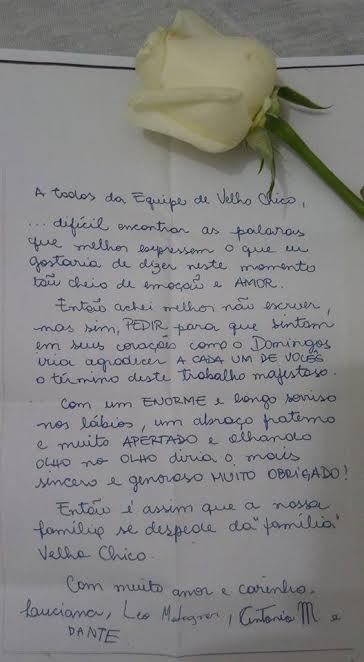 A todos da Equipe de Velho Chico,
... difícil encontrar as palavras
que melhor expressem o que eu
gostaria de dizer neste momento
tão cheio de emoção e AMOR.
Então achei melhor não escrever,
mas sim, PEDIR para que sintam
em seus corações como o Domingos
iria agradecer A CADA UM DE VOCÊS
o término deste trabalho majestoso.
Com um ENORME e longo sorriso
nos lábios, um abraço fraterno
e muito APERTADO e olhando
OLHO no OLHO diria o mais
sincero e generoso MUITO OBRIGADO!
Então é assim que a nossa
família se despede da "família"
Velho Chico.
Com muito amor e carinho.
Luciana, Leo , Antonio M e
DANTE